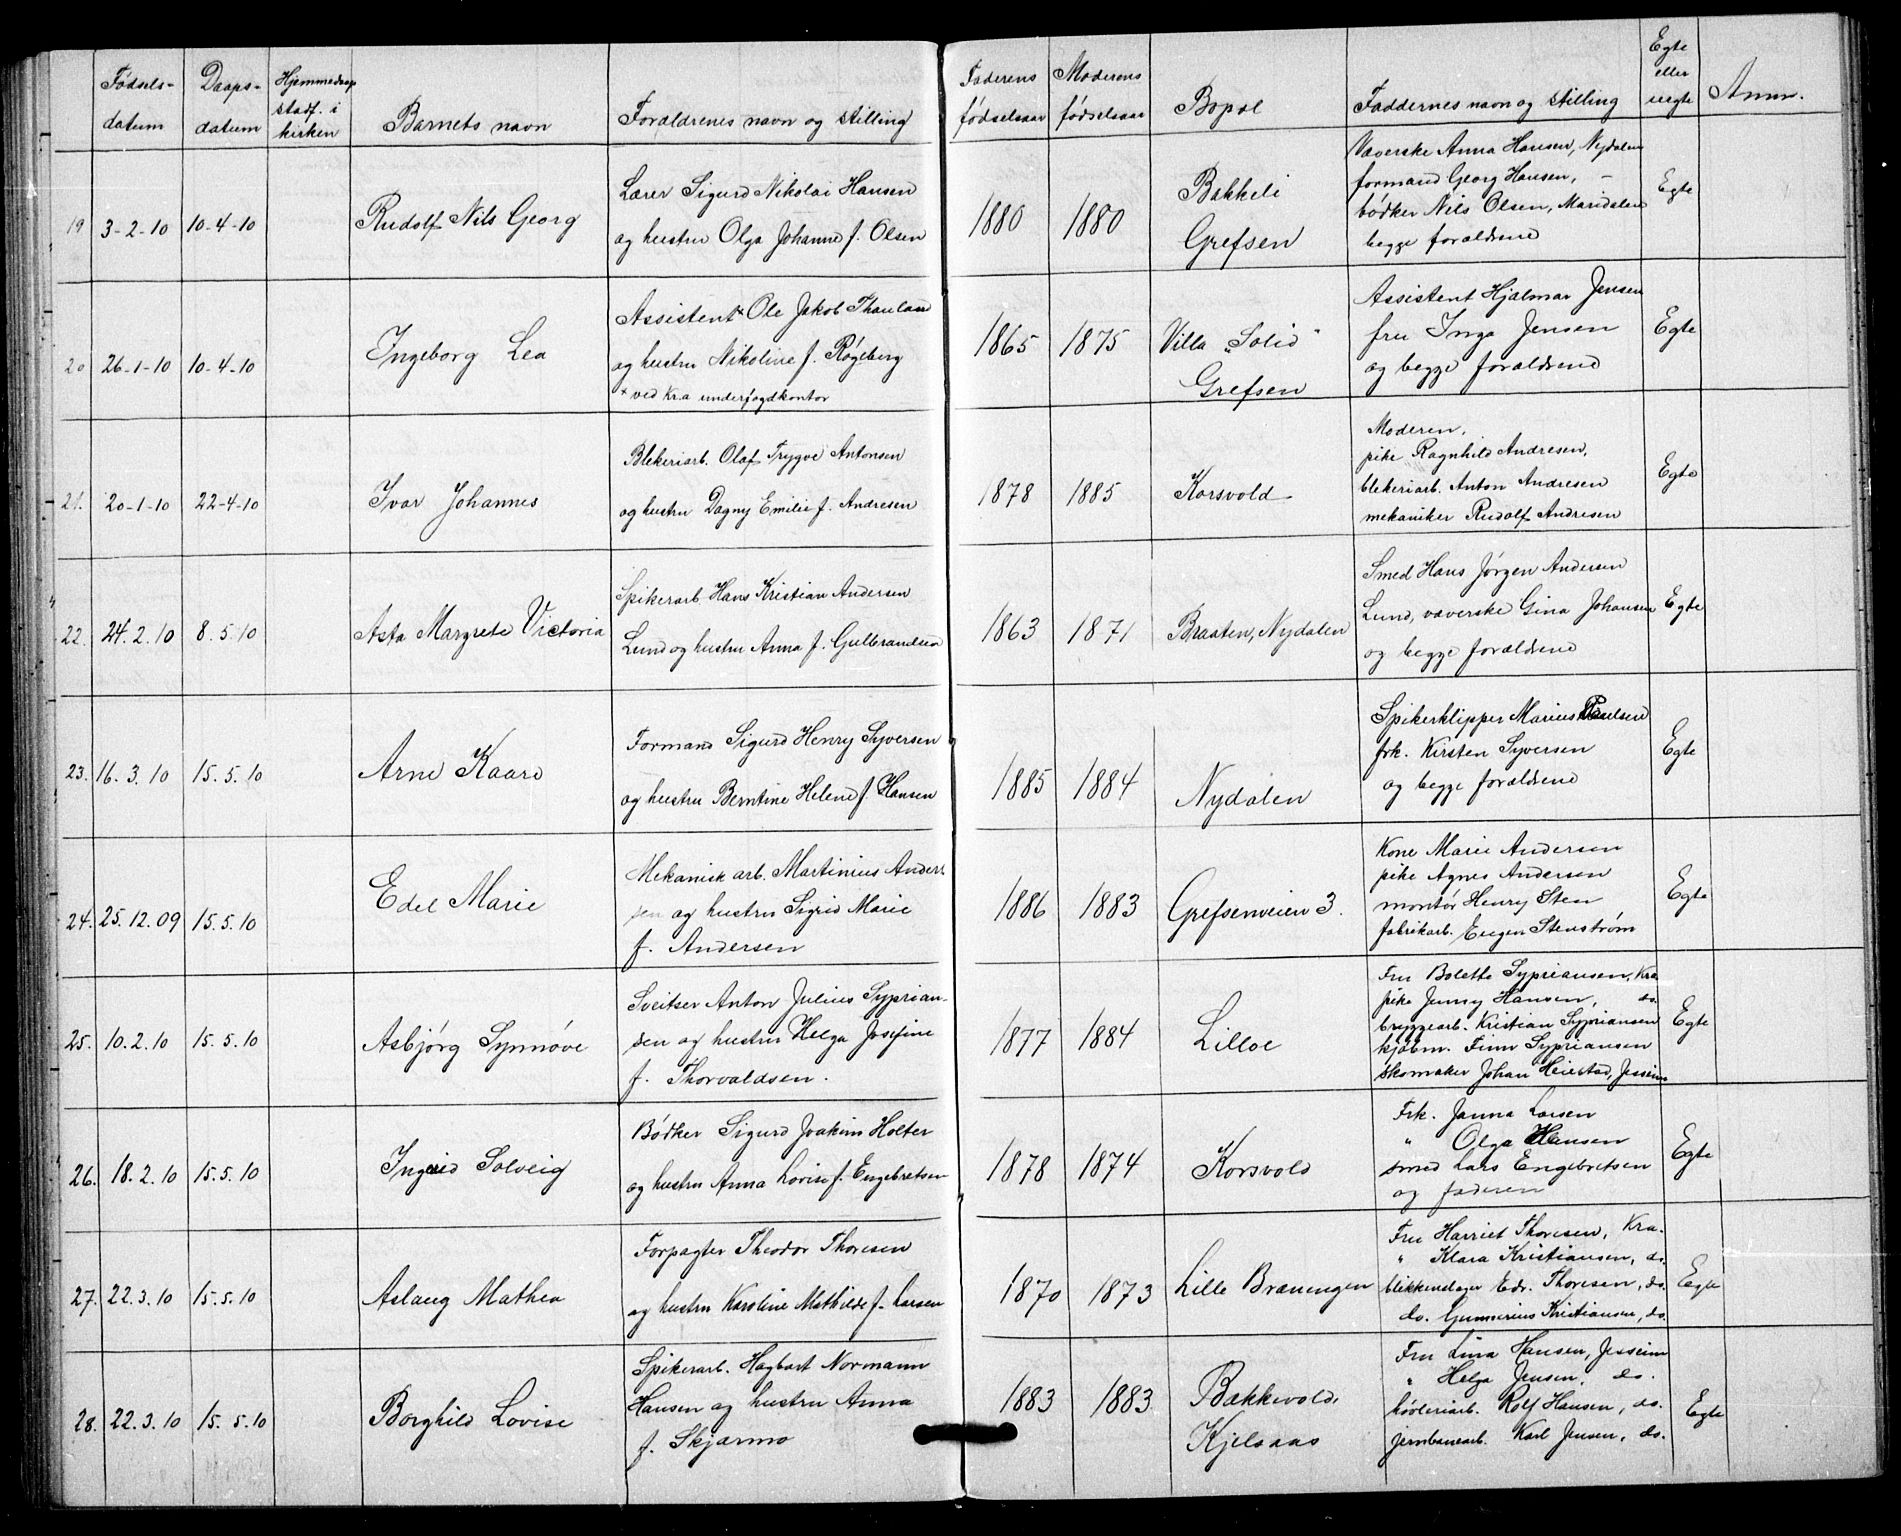 Fødsels-datum | Daaps-datum | Hjemmedaap stadf. i kirken | Barnets navn | Forældrenes navn og stilling | Faderens fødselsaar | Moderens fødselsaar | Bopæl | Faddernes navn og stilling | Egte eller uegte | Anm.
19 | 3-2-10 | 10-4-10 | Rudolf Nils Georg | Lærer Sigurd Nikolai Hansen
og hustru Olga Johanne f. Olsen | 1880 | 1880 | Bakkeli
Grefsen | Væverske Anna Hansen, Nydalen
formand Georg Hansen, –
bødker Nils Olsen, Maridalen
begge forældrene | Egte
20 | 26-1-10 | 10-4-10 | Ingeborg Lea | Assistent× Ole Jakob Thauland
og hustru Nikoline f. Røgeberg
× ved Kra underfogdkontor | 1865 | 1875 | Villa "Solid"
Grefsen | Assistent Hjalmar Jensen
fru Inga Jensen
og begge forældrene | Egte
21. | 20-1-10 | 22-4-10 | Ivar Johannes | Blekeriarb. Olaf Trygve Antonsen
og hustru Dagny Emilie f. Andresen | 1878 | 1885 | Korsvold | Moderen,
pike Ragnhild Andresen,
blekeriarb. Anton Andresen
mekaniker Rudolf Andresen | Egte
22. | 24.2.10 | 8.5.10 | Asta Margrete Victoria | Spikerarb Hans Kristian Andersen
Lund og hustru Anna f. Gulbrandsen | 1863 | 1871 | Braaten, Nydalen | Smed Hans Jørgen Andersen
Lund, væverske Gina Johansen
og begge forældrene | Egte
23. | 16.3.10 | 15.5.10 | Arne Kaare | Formand Sigurd Henry Syversen
og hustru Berntine Helene f. Hansen | 1885 | 1884 | Nydalen | Spikerklipper Marius Paulsen
frk. Kirsten Syversen
og begge forældrene | Egte
24. | 25.12.09 | 15.5.10 | Edel Marie | Mekanisk arb. Martinius Ander-
sen og hustru Sigrid Marie
f. Andersen | 1886 | 1883 | Grefsenveien 3. | Kone Marie Andersen
pike Agnes Andersen
montør Henry Sten
fabrikarb. Eugen Stenstrøm | Egte
25. | 10.2.10 | 15.5.10 | Asbjørg Synnøve | Sveitser Anton Julius Syprian-
sen og hustru Helga Josefine
f. Thorvaldsen. | 1877 | 1884 | Lilloe | Fru Bolette Sypriansen, Kra
pike Jenny Hansen, do.
bryggearb. Kristian Sypriansen
kjøbm. Finn Sypriansen
skomaker Johan Heiestad, Jessem | Egte
26. | 18.2.10 | 15.5.10 | Ingrid Solveig | Bødker Sigurd Joakim Holter
og hustru Anna Lovise f. Engebretsen | 1878 | 1874 | Korsvold | Frk. Janna Larsen
" Olga Hansen
smed Lars Engebretsen
og faderen | Egte
27. | 22.3.10 | 15.5.10 | Aslaug Mathea | Forpagter Theodor Thoresen
og hustru Karoline Mathilde f. Larsen | 1870 | 1873 | Lille Bræningen | Fru Harriet Thoresen, Kra.
" Klara Kristiansen, do.
blikkenslager Edv. Thoresen, do.
do. Gunnerius Kristiansen, do. | Egte
28. | 22.3.10 | 15.5.10 | Borghild Lovise | Spikerarb. Hagbart Normann
Hansen og hustru Anna
f. Skjærmo | 1883 | 1883 | Bakkevold.
Kjelsaas | Fru Lina Hansen, Jessem
" Helga Jensen, do.
høvleriarb. Rolf Hansen, do.
jernbanearb. Karl Jensen, do. | Egte